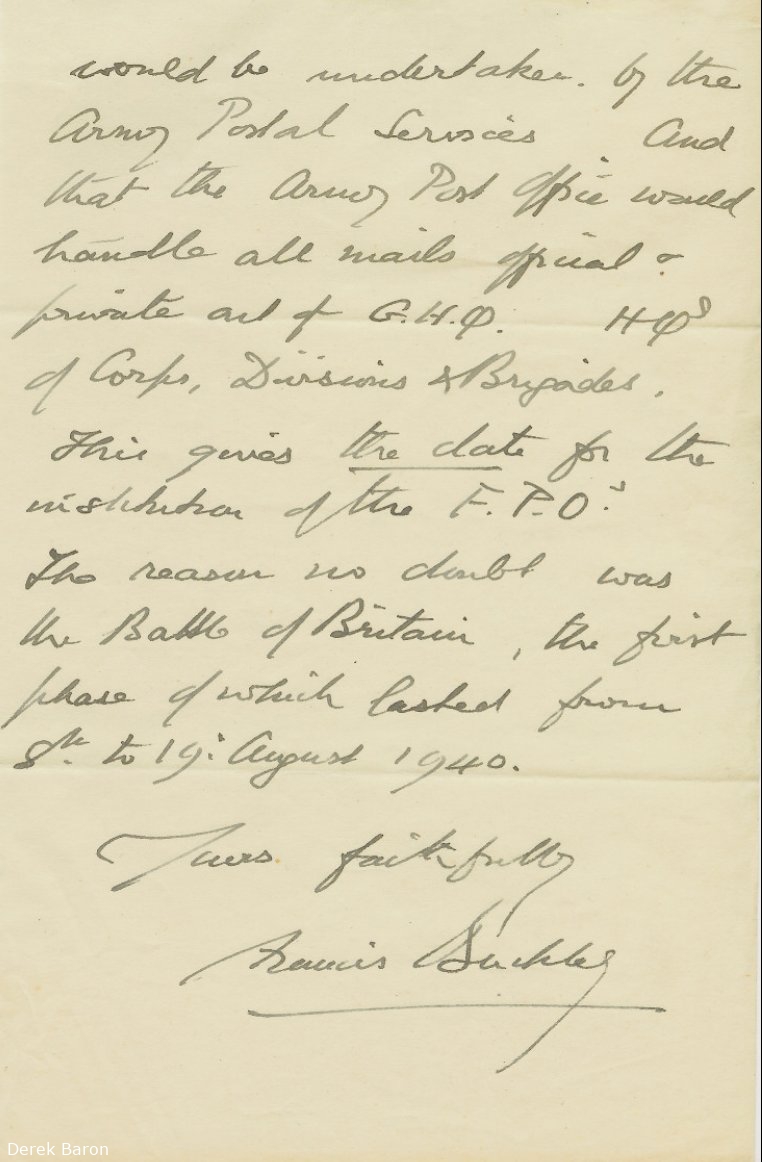 would be undertaken. by the
Army Postal Services And
that the Army Post Office would
handle all mails official &
private out of G.H.Q. HQs
of Corps, Divisions & Brigades.
This gives the date for the
institution of the F.P.O.s
The reason no doubt was
the Battle of Britain, the first
phase of which lasted from
8th to 19. August 1940.
Yours faithfully
Francis Buckley
Derek Baron